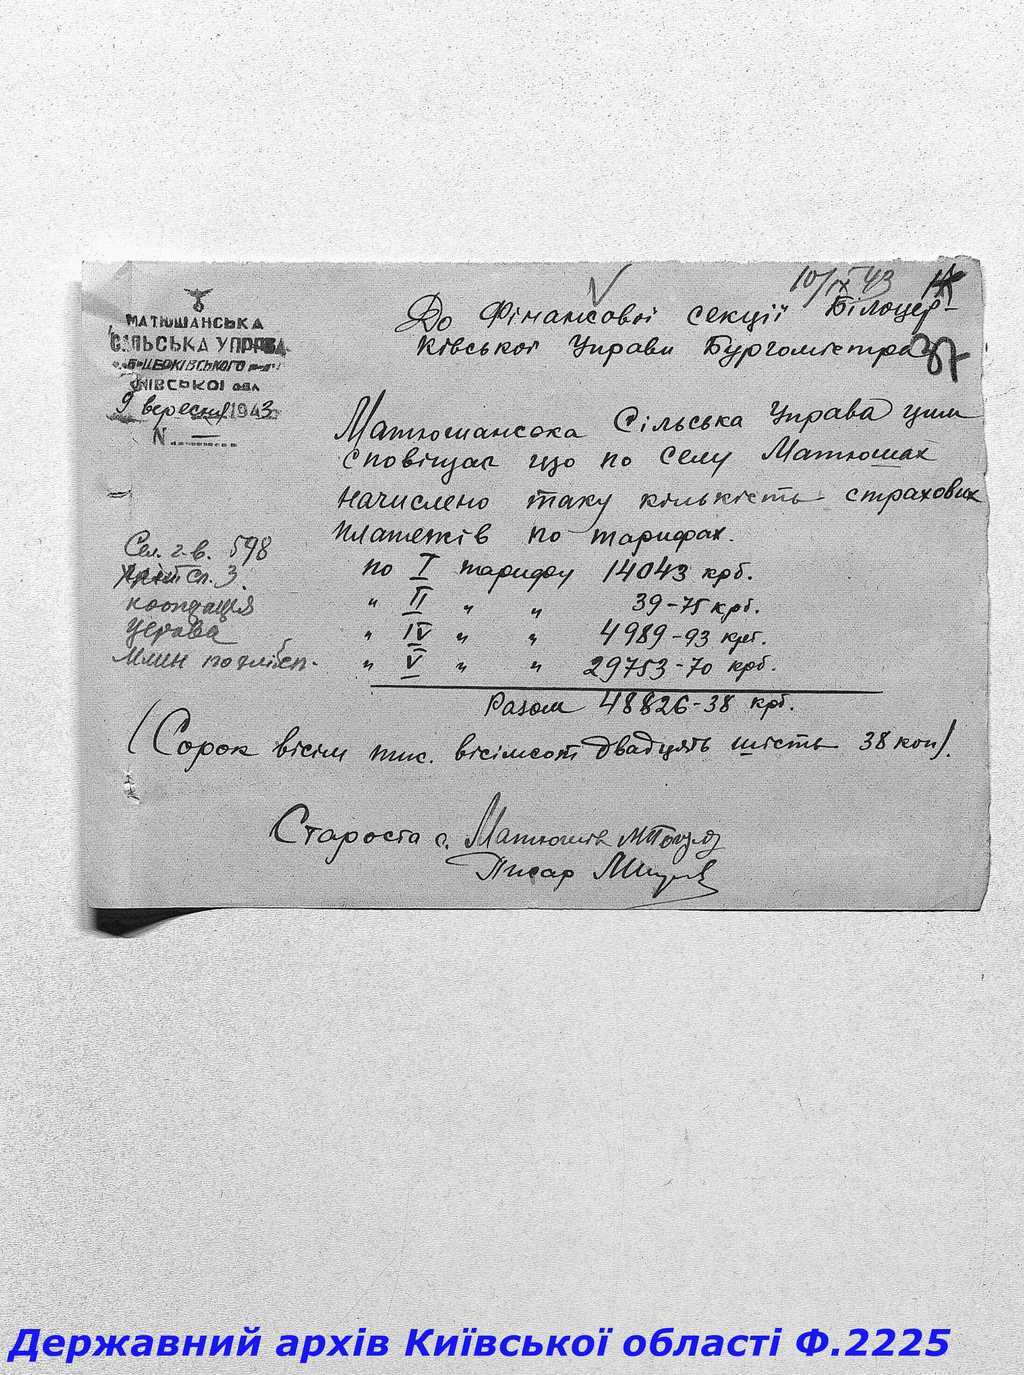 10/IX 43
До Фінансової секції Білоцер-
ківської Управи Бургомістра
37
МАТЮШАНСЬКА
СІЛЬСЬКА УПРАВА
Б-ЦЕРКІВСЬКОГО
КИЇВСЬКОЇ ОБЛ
9 вересня 1943
N —
Матюшанська Сільська Управа цим
сповіщає що по селу Матюшах
начислено таку кількість страхових
платежів по тарифах.
Сел. г.в. 598
сп. 3.
кооперація
Управа
Млин
по I тарифу 14043 крб.
" II " " 39-75 крб.
" IV " " 4989-93 крб.
" V " " 29753-70 крб.
Разом 48826-38 крб.
(Сорок вісім тис. вісімсот двадцять шість 38 коп).
Староста с. Матюшів
Писар
Державний архів Київської області Ф.2225